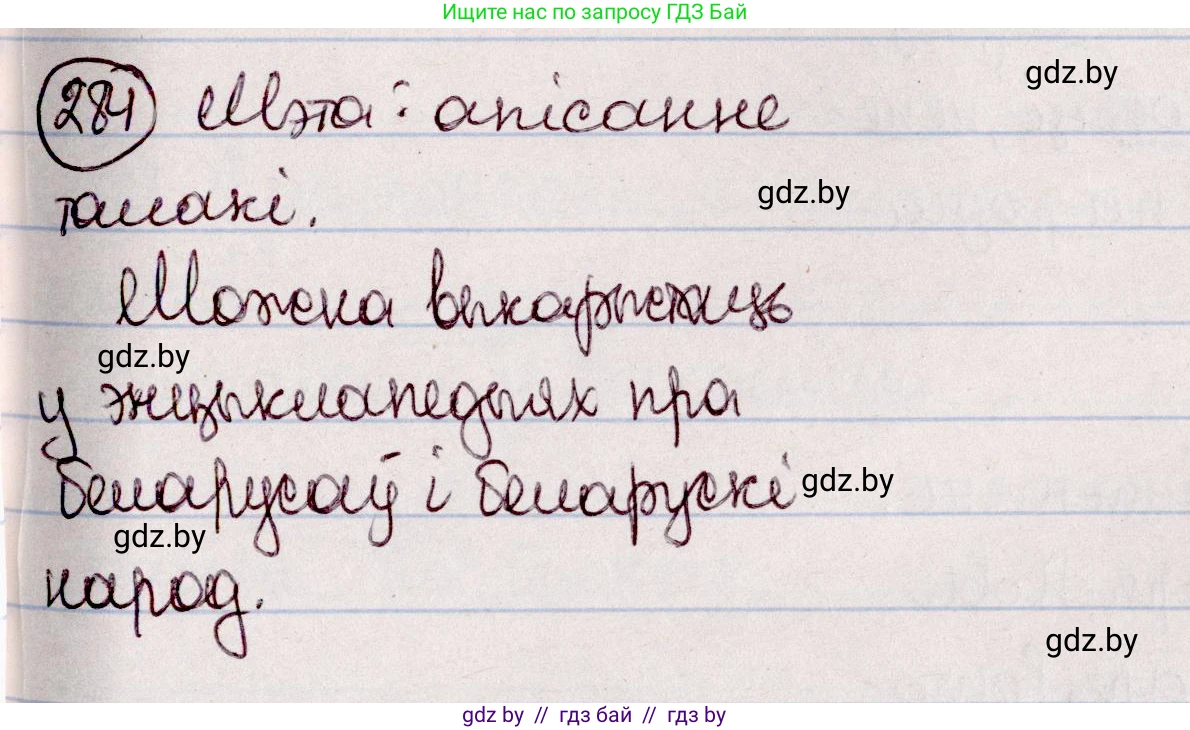 Ищите нас по запросу ГДЗ Бай
284 Мэта: апісанне
gdz.by
талакі.
gdz.by
Можна выкарыстаць
gdz.by
у энцыклапедыях пра
беларусаў і беларускі
gdz.by
gdz.by
народ.
gdz.by
gdz by // гдз бай // гдз by